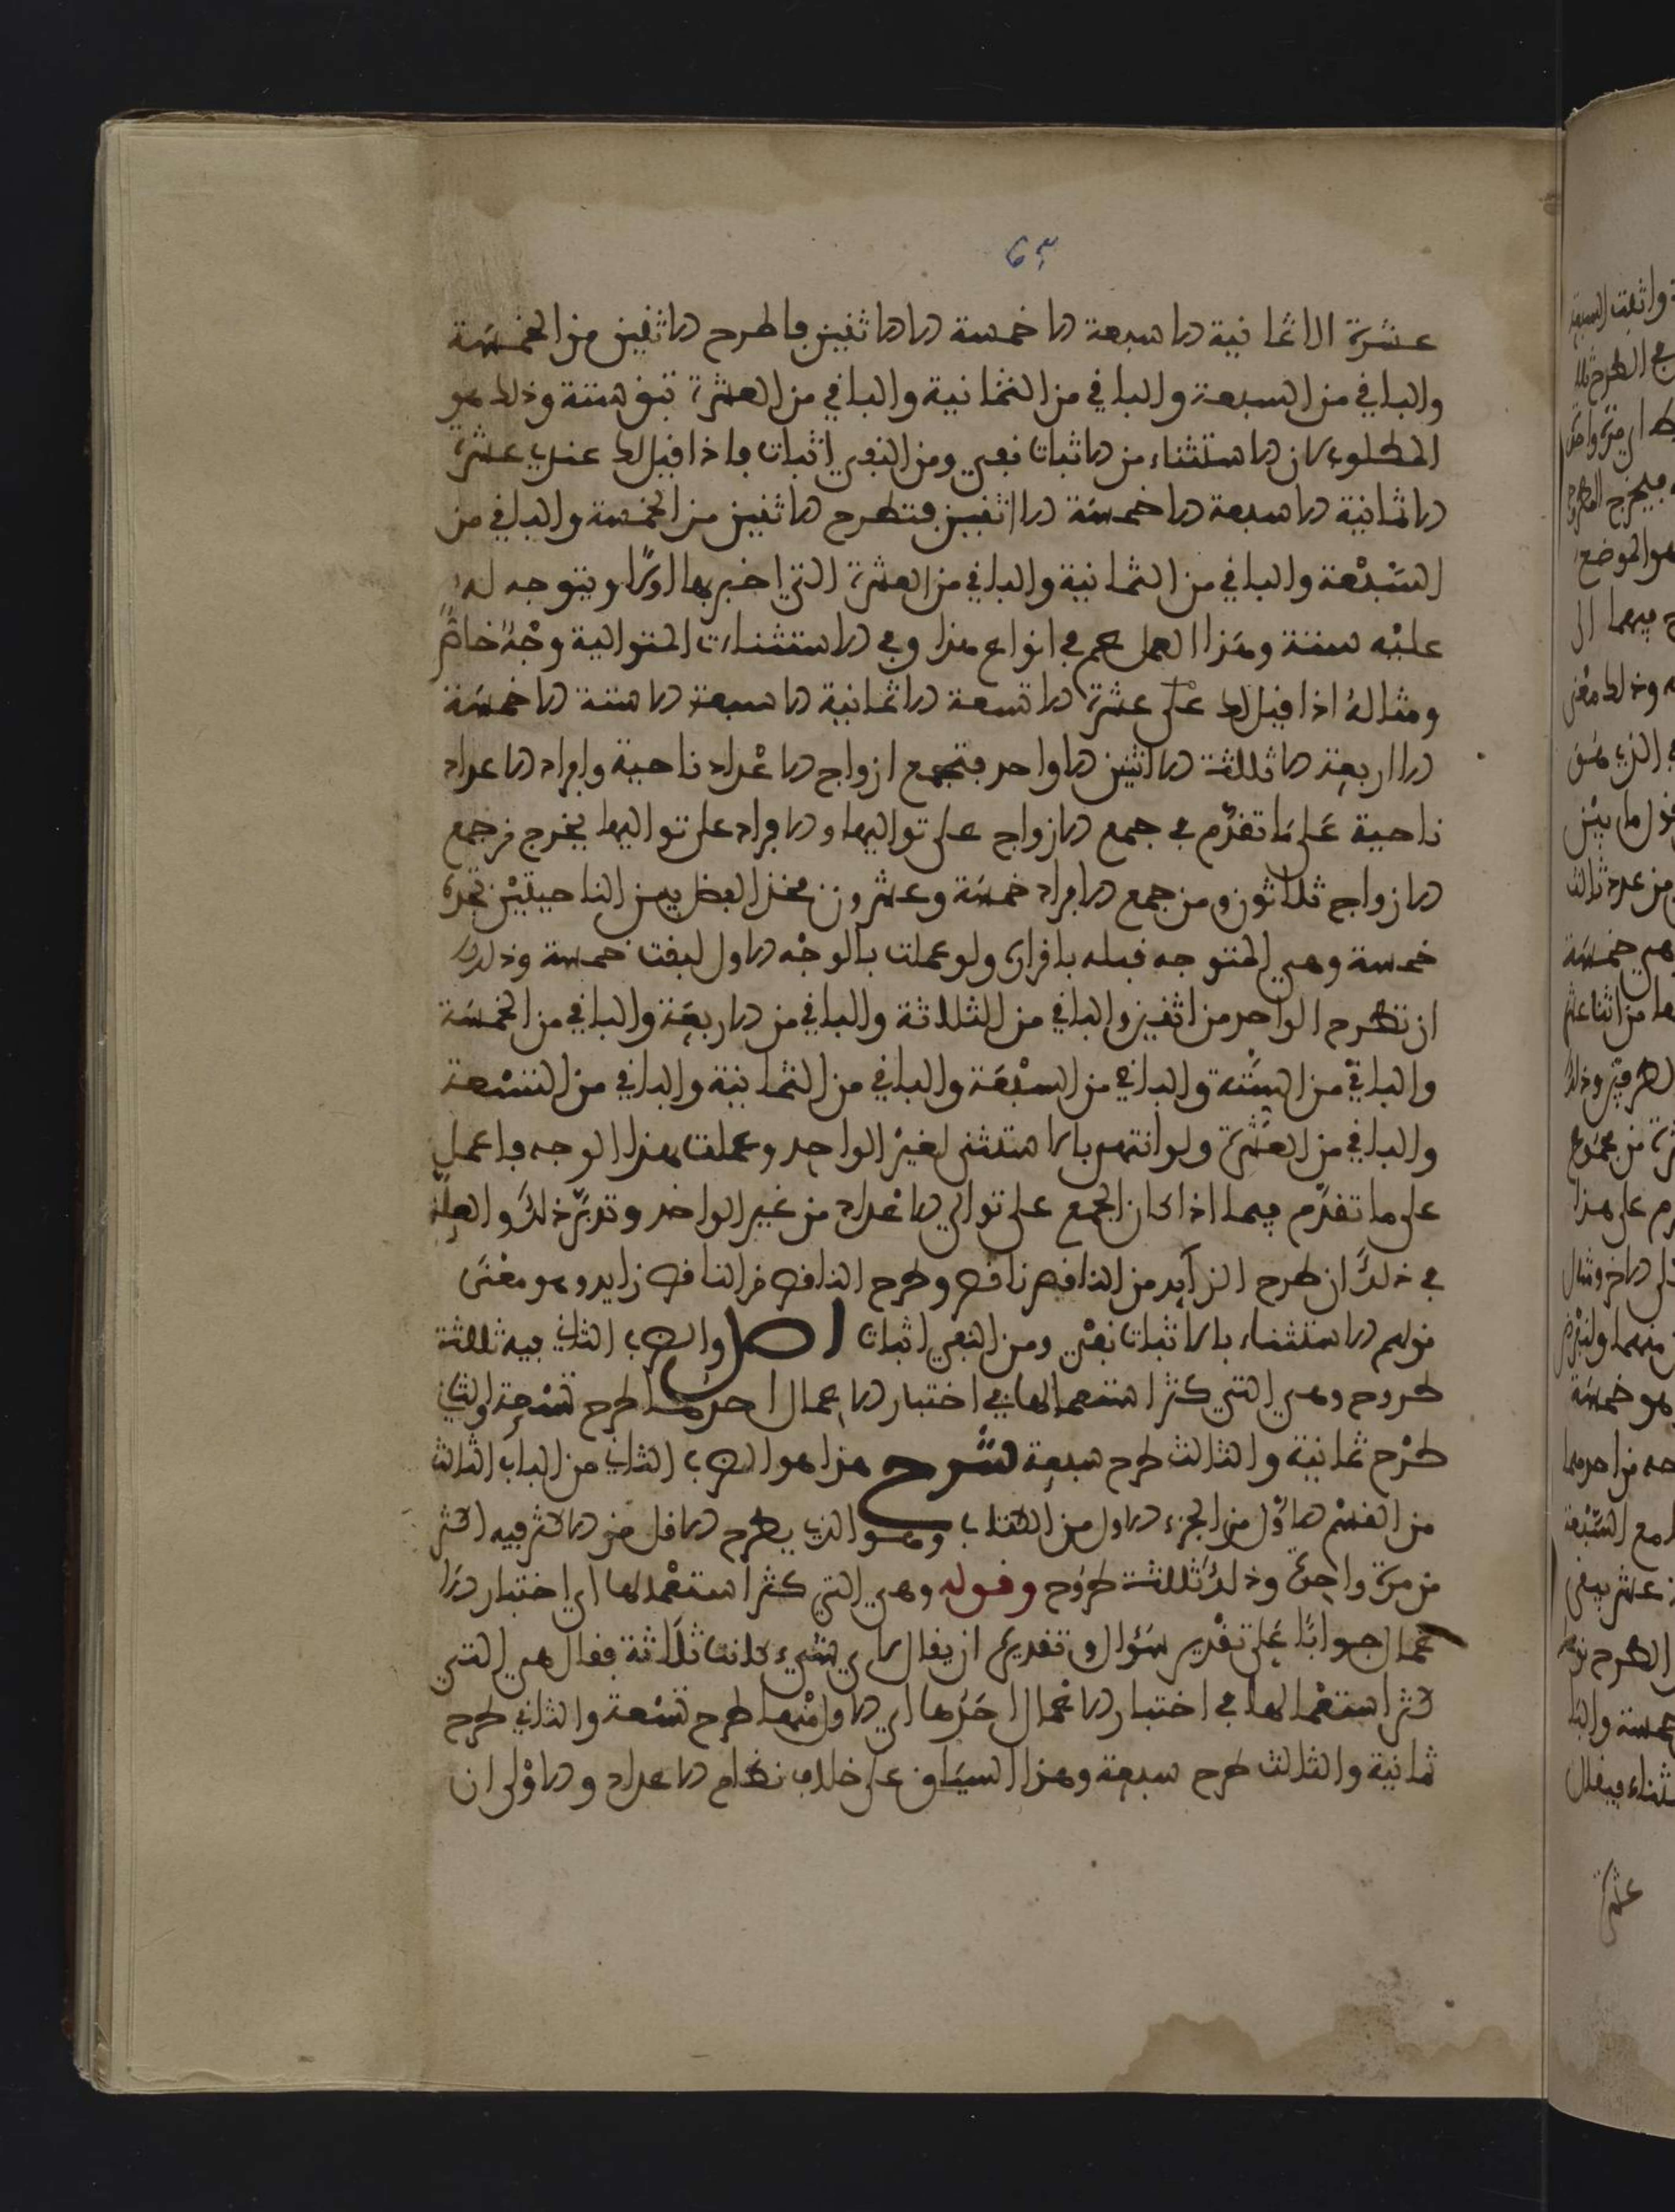 عشرة الا ثمانية الا سبعة الا خمسة الا اثنين فاطرح الاثنين من الخمسة
والباقي من السبعة والباقي من الثمانية والباقي من العشرة تبق ستة وذلك هو
المطلوب لان الاستثناء من الاثبات نفي ومن النفي اثبات فاذا قيل لك عندي عشرة
الا ثمانية الا سبعة الا خمسة الا اثنين فتطرح الاثنين من الخمسة والباقي من
السَّبْعة والباقي من الثمانية والباقي من العشرة التي اخبر بها اوّلا ويتوجه له
عليْه ستة وهذا العمل عم في انواع هذا وفي الاستثناءات المتوالية وجْهٌ خاصٌّ
ومثاله اذا قيل لك على عشرة الا تسعة الا ثمانية الا سبعة الا ستة الا خمسَة
الا اربعة الا ثلثة الا اثنين الا واحد فتجمع ازواج الاعْداد ناحية وافراد الاعداد
ناحية عَلى مَا تقدّم في جمع الازواج على تواليها والافراد على تواليها يخرج من جمع
الازواج ثلاثون ومن جمع الافراد خمسَة وعشرون فخذ الفضل بين الناحيتيْن تجده
خمسة وهي المتوجه قبله باقراره ولو عملت بالوجْه الاول لبقت خمسة وذلك
ان تطرح الواحد من اثنين والباقي من الثلاثة والباقي من الاربعَة والباقي من الخمسَة
والباقي من السِّتة والباقي من السبْعَة والباقي من الثمانية والباقي من التسْعة
والباقي من العشَرة ولو انتهى بالاستثنى لغيْر الواحد وعملت بهذا الوجه فاعمل
على ما تقدّم فيما اذا كان الجمع على توالي الاعْداد من غير الواحد وتدبّر ذلك والعلّة
في ذلكَ ان طرح الزآيد من الناقص ناقص وطرح الناقص من الناقص زايد وهو معْنَى
قولهم الاستثناء بالاثبات نفْي ومن النفي اثبات اصل والضرب الثاني فيه ثلثة
طروح وهي التي كثر استعمالها في اختبار الاعمال احدها طرح تسْعة والثاني
طرْح ثمانية والثالث طرح سبعة شرح هذا هو الضرب الثاني من الباب الثالث
من القسْم الاوّل من الجزء الاول من الكتاب وهو الذي يطرح الاقل من الاكثر فيه اكثر
من مرة واحِدة وذلكَ ثلثة طروح وقوله وهي التي كثر استعْمالها اي اختبار الا
عمال جوابًا عَلى تقْدير سَؤال وتقديره ان يقال لاي شَيء كانت ثلَاثة فقال هي التي
كثر استعْمالها في اختبار الاعْمال احَدها اي الاول منْها طرح تسْعة والثاني طرح
ثمانية والثالث طرح سبعة وهذا السيَاق على خلاف نظام الاعداد والاوْلى ان